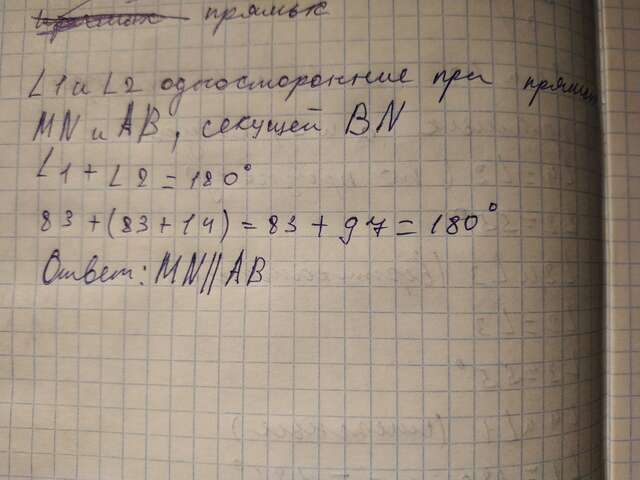 прямых
∠1 и ∠2 односторонние при прямых
MN и AB, секущей BN
∠1 + ∠2 = 180°
83 + (83 + 14) = 83 + 97 = 180°
Ответ: MN || AB